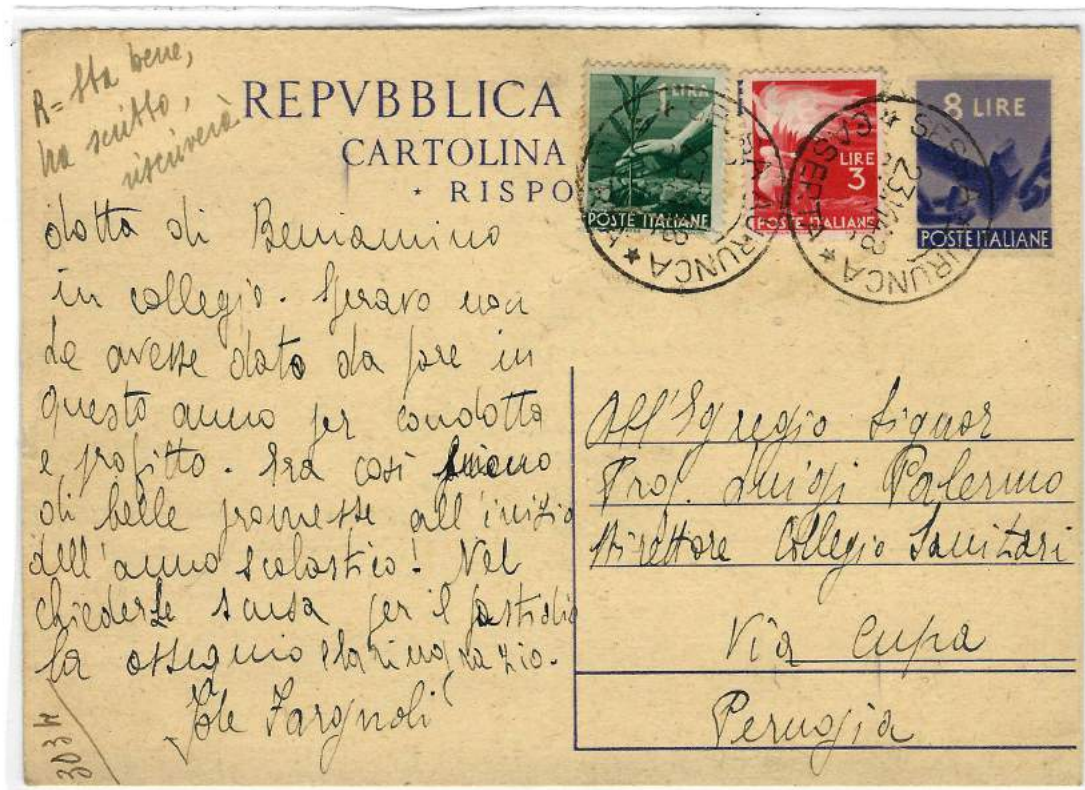 R = Sta bene,
ha scritto,
riscriverà
REPVBBLICA
CARTOLINA
* RISPO
1 LIRA
POSTE ITALIANE
LIRE
3
POSTE ITALIANE
8 LIRE
POSTE ITALIANE
SESSA AURUNCA
* CASERTA *
dotta di Beniamino
in collegio. Speravo non
Le avesse dato da fare in
questo anno per condotta
e profitto. Era così
di belle promesse all'inizio
dell'anno scolastico! Nel
chiederLe scusa per il fastidio
La ossequio e la ringrazio.
Jole Fargnoli
3034
All'Egregio Signor
Prof. Luigi Palermo
Direttore Collegio Sanitari
Via Cupa
Perugia